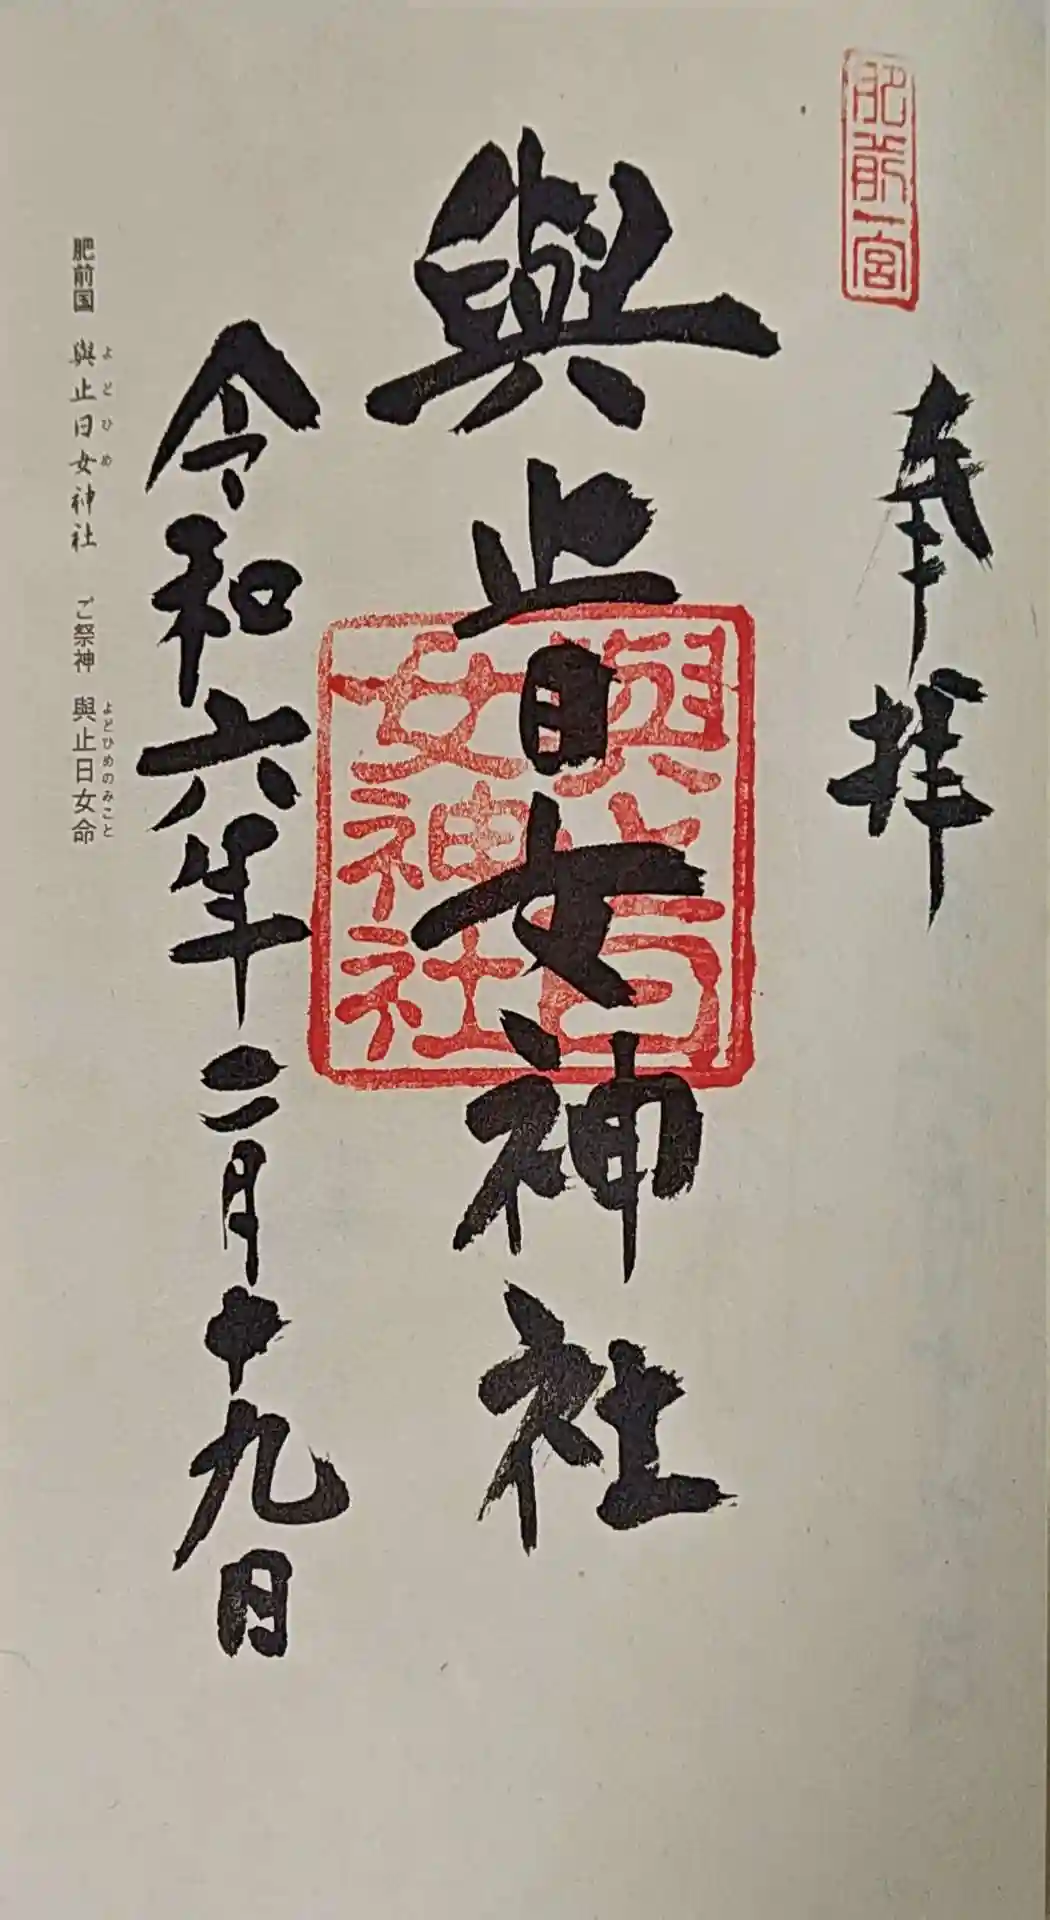 肥前一宮
奉拝
與止日女神社
與止日女神社
令和六年二月十九日
肥前国 與止日女神社 ご祭神 與止日女命
よどひめ
よどひめのみこと